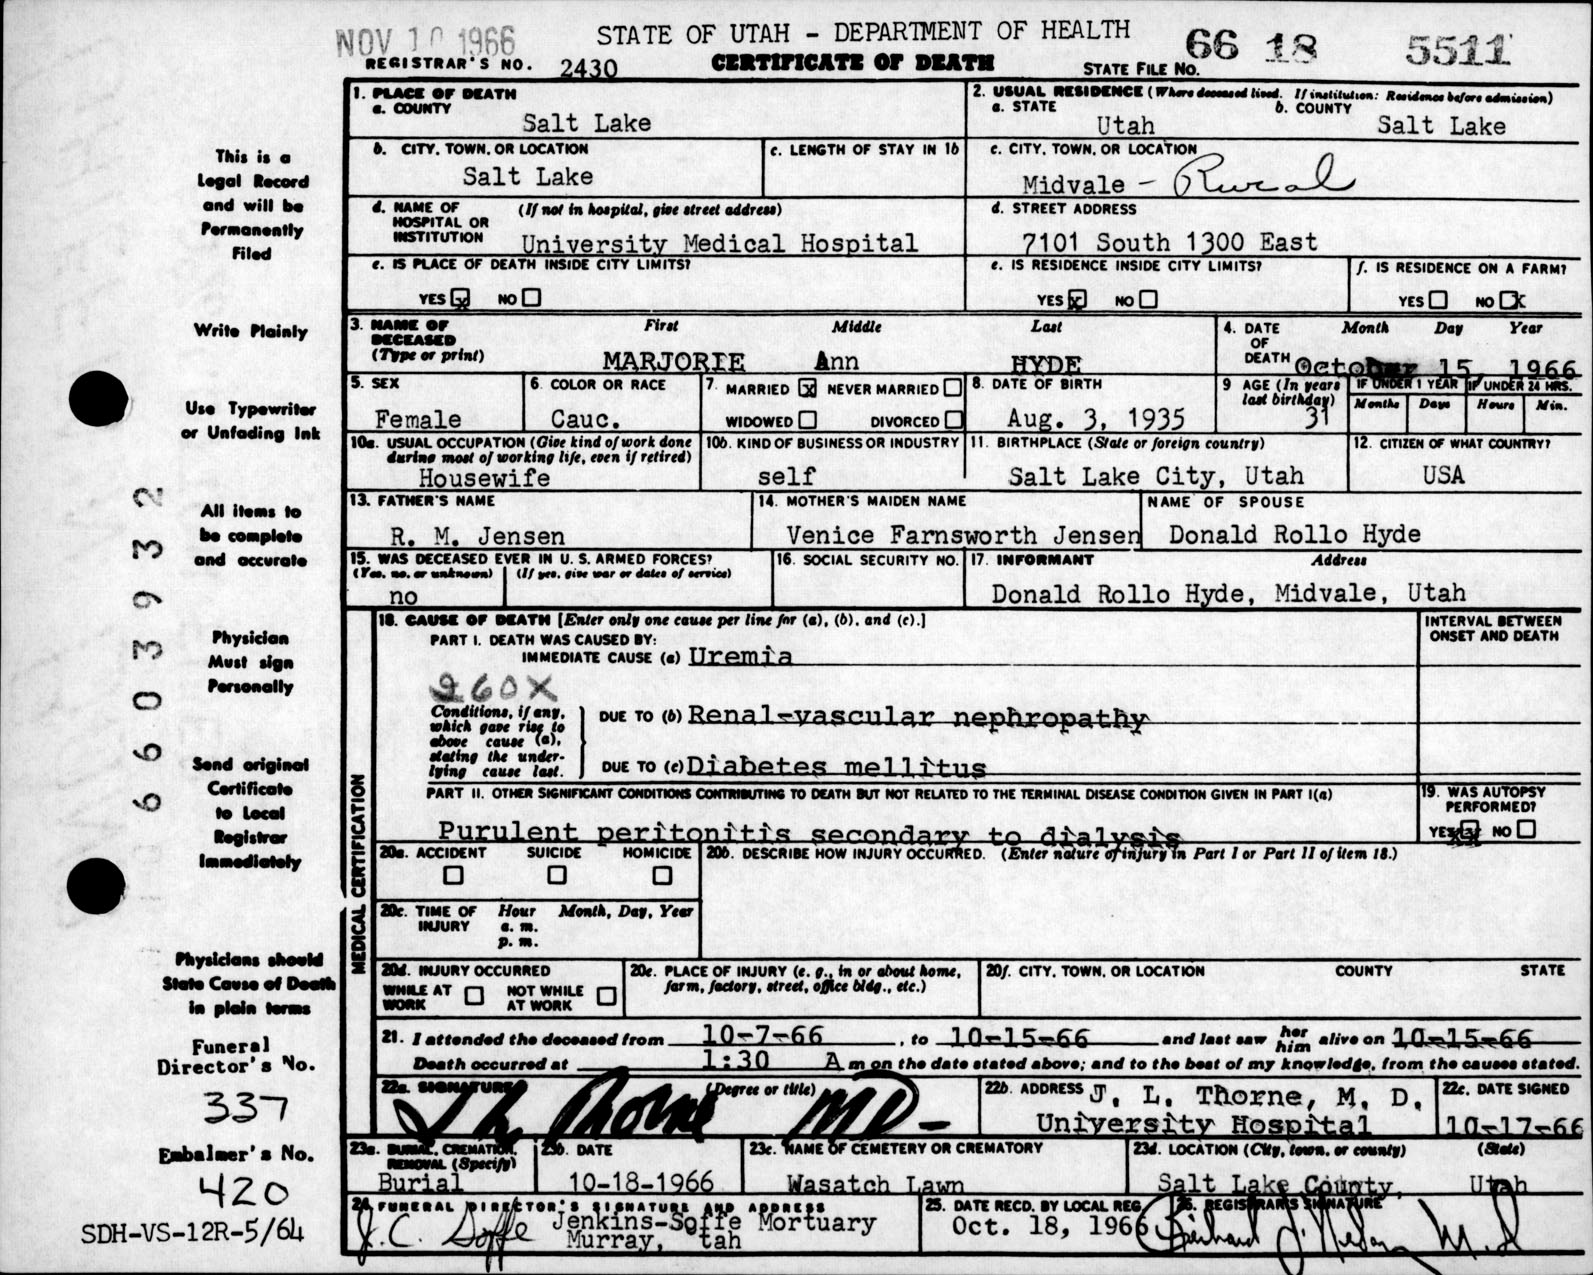 NOV 10 1966
STATE OF UTAH - DEPARTMENT OF HEALTH
66 18 5511
REGISTRAR'S NO. 2430
CERTIFICATE OF DEATH
STATE FILE NO.
1. PLACE OF DEATH
a. COUNTY
Salt Lake
2. USUAL RESIDENCE (Where deceased lived. If institution: Residence before admission)
a. STATE b. COUNTY
Utah Salt Lake
b. CITY, TOWN, OR LOCATION
Salt Lake
c. LENGTH OF STAY IN 1b
c. CITY, TOWN, OR LOCATION
Midvale - Rural
d. NAME OF HOSPITAL OR INSTITUTION (If not in hospital, give street address)
University Medical Hospital
d. STREET ADDRESS
7101 South 1300 East
e. IS PLACE OF DEATH INSIDE CITY LIMITS?
YES x NO
e. IS RESIDENCE INSIDE CITY LIMITS?
YES x NO
f. IS RESIDENCE ON A FARM?
YES NO X
3. NAME OF DECEASED (Type or print)
First Middle Last
MARJORIE Ann HYDE
4. DATE OF DEATH Month Day Year
October 15, 1966
5. SEX
Female
6. COLOR OR RACE
Cauc.
7. MARRIED x NEVER MARRIED
WIDOWED DIVORCED
8. DATE OF BIRTH
Aug. 3, 1935
9 AGE (In years last birthday)
31
IF UNDER 1 YEAR
Months Days
IF UNDER 24 HRS.
Hours Min.
10a. USUAL OCCUPATION (Give kind of work done during most of working life, even if retired)
Housewife
10b. KIND OF BUSINESS OR INDUSTRY
self
11. BIRTHPLACE (State or foreign country)
Salt Lake City, Utah
12. CITIZEN OF WHAT COUNTRY?
USA
13. FATHER'S NAME
R. M. Jensen
14. MOTHER'S MAIDEN NAME
Venice Farnsworth Jensen
NAME OF SPOUSE
Donald Rollo Hyde
15. WAS DECEASED EVER IN U. S. ARMED FORCES?
(Yes, no, or unknown) (If yes, give war or dates of service)
no
16. SOCIAL SECURITY NO.
17. INFORMANT Address
Donald Rollo Hyde, Midvale, Utah
MEDICAL CERTIFICATION
18. CAUSE OF DEATH [Enter only one cause per line for (a), (b), and (c).]
PART I. DEATH WAS CAUSED BY:
IMMEDIATE CAUSE (a) Uremia
INTERVAL BETWEEN ONSET AND DEATH
260X
Conditions, if any, which gave rise to above cause (a), stating the underlying cause last.
DUE TO (b) Renal-vascular nephropathy
DUE TO (c) Diabetes mellitus
PART II. OTHER SIGNIFICANT CONDITIONS CONTRIBUTING TO DEATH BUT NOT RELATED TO THE TERMINAL DISEASE CONDITION GIVEN IN PART I(a)
Purulent peritonitis secondary to dialysis
19. WAS AUTOPSY PERFORMED?
YES NO
20a. ACCIDENT SUICIDE HOMICIDE
20b. DESCRIBE HOW INJURY OCCURRED. (Enter nature of injury in Part I or Part II of item 18.)
20c. TIME OF INJURY Hour Month, Day, Year
a. m.
p. m.
20d. INJURY OCCURRED
WHILE AT WORK NOT WHILE AT WORK
20e. PLACE OF INJURY (e. g., in or about home, farm, factory, street, office bldg., etc.)
20f. CITY, TOWN, OR LOCATION COUNTY STATE
21. I attended the deceased from 10-7-66, to 10-15-66 and last saw her him alive on 10-15-66
Death occurred at 1:30 A m on the date stated above; and to the best of my knowledge, from the causes stated.
22a. SIGNATURE (Degree or title)
J L Thorne MD-
22b. ADDRESS J. L. Thorne, M. D.
University Hospital
22c. DATE SIGNED
10-17-66
23a. BURIAL, CREMATION, REMOVAL (Specify)
Burial
23b. DATE
10-18-1966
23c. NAME OF CEMETERY OR CREMATORY
Wasatch Lawn
23d. LOCATION (City, town, or county) (State)
Salt Lake County, Utah
24 FUNERAL DIRECTOR'S SIGNATURE AND ADDRESS
J. C. Soffe Jenkins-Soffe Mortuary
Murray, tah
25. DATE RECD. BY LOCAL REG.
Oct. 18, 1966
26. REGISTRAR'S SIGNATURE
M. D
This is a
Legal Record
and will be
Permanently
Filed
Write Plainly
Use Typewriter
or Unfading Ink
All items to
be complete
and accurate
Physician
Must sign
Personally
Send original
Certificate
to Local
Registrar
Immediately
Physicians should
State Cause of Death
in plain terms
Funeral
Director's No.
337
Embalmer's No.
420
SDH-VS-12R-5/64
66 03932